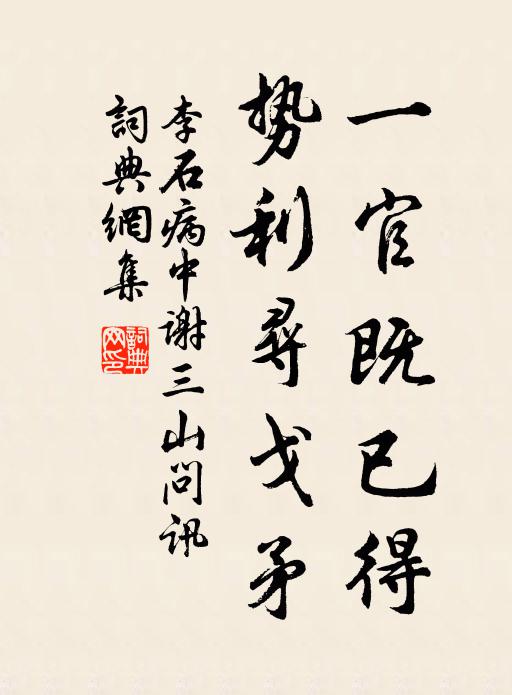 一官既已得
势利尋戈矛
李石病中谢三山问讯
詞典網集
詞典網印